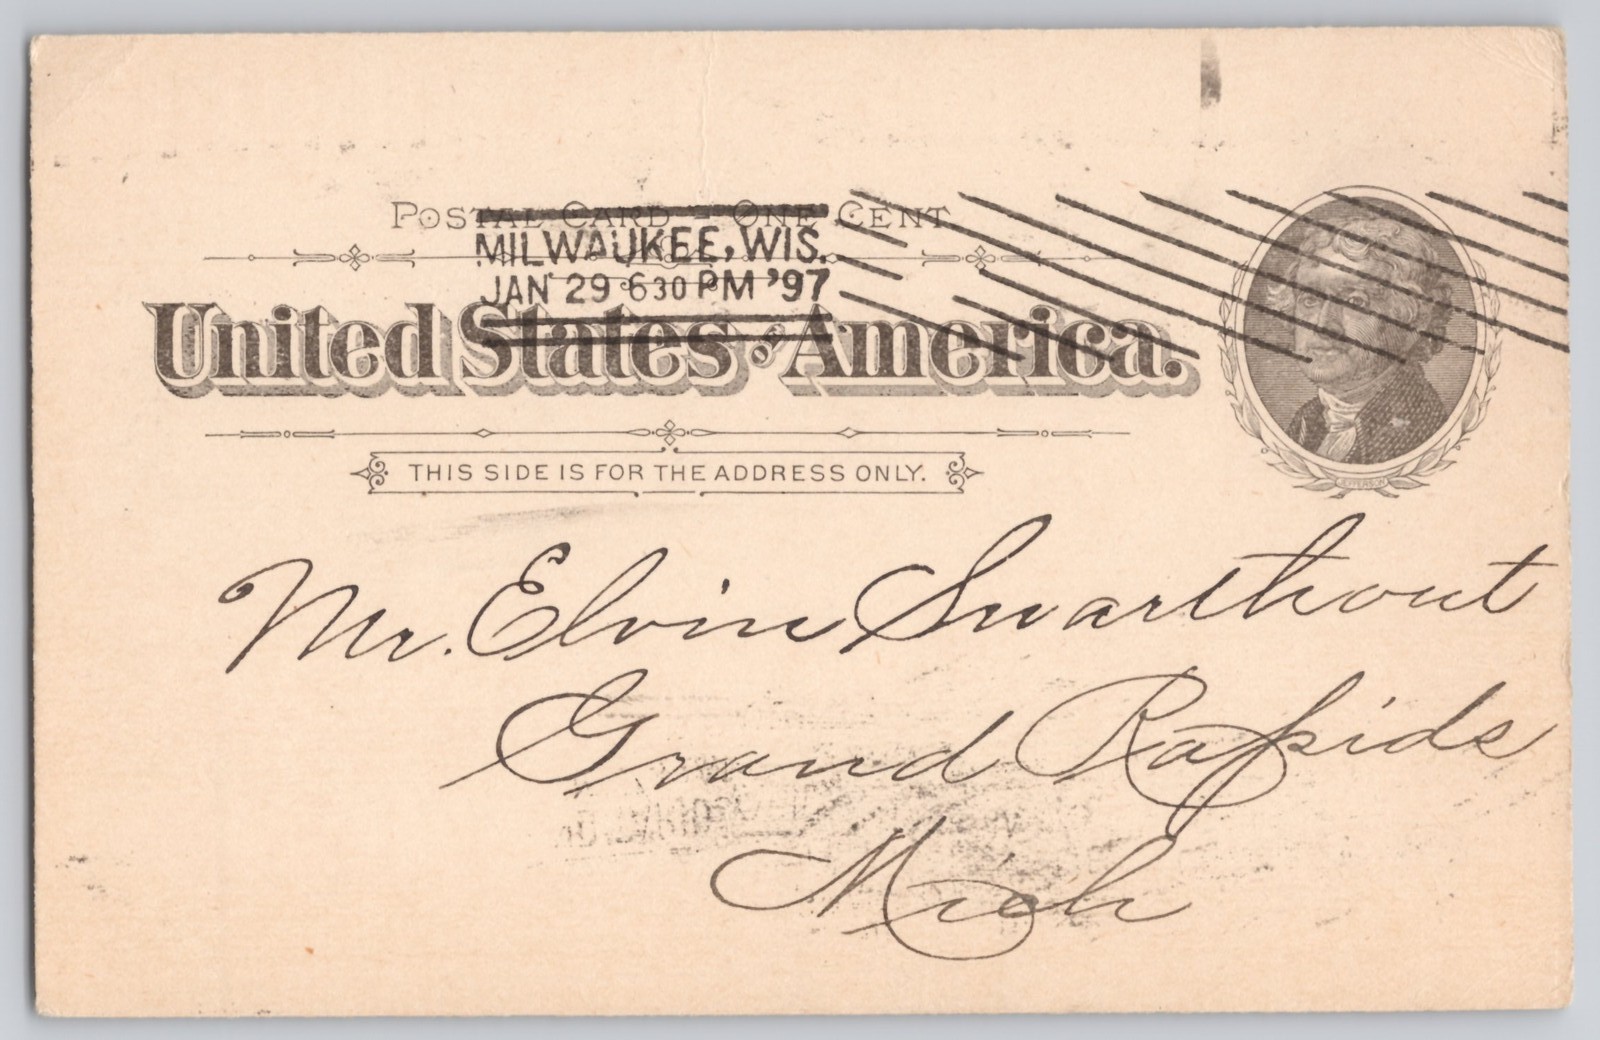 POSTAL CARD - ONE CENT
MILWAUKEE, WIS.
JAN 29 630 PM '97
United States of America.
THIS SIDE IS FOR THE ADDRESS ONLY.
JEFFERSON
Mr. Elvin Swarthout
Grand Rapids
Mich